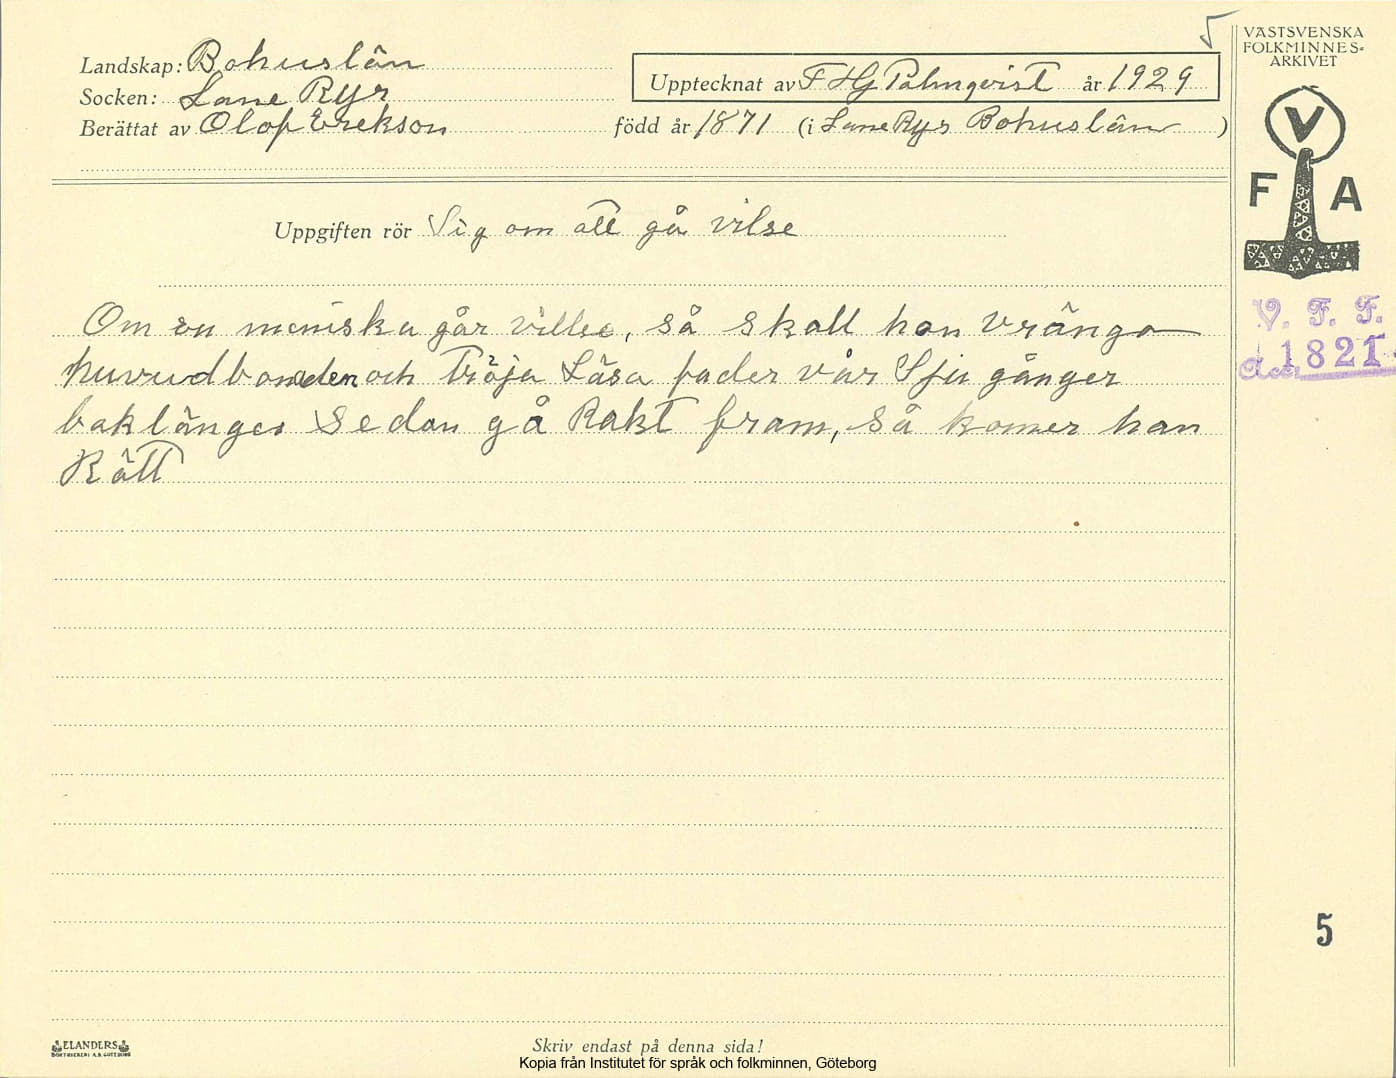 Landskap: Bohuslän
Socken: Lane Ryr
Berättat av Olof Erekson
Upptecknat av F Hj Palmqvist år 1929
född år 1871 (i Lane Ryr Bohuslän)
VÄSTSVENSKA
FOLKMINNES-
ARKIVET
V
F A
V. F. F.
Acc. 1821
Uppgiften rör Sig om att gå vilse
Om en meniska går villse, så skall han vränga
huvudbonaden och tröja Läsa fader vår Sju gånger
baklänges Sedan gå Rakt fram, så komer han
Rätt
5
ELANDERS
BOKTRYCKERI A.B. GÖTEBORG
Skriv endast på denna sida!
Kopia från Institutet för språk och folkminnen, Göteborg